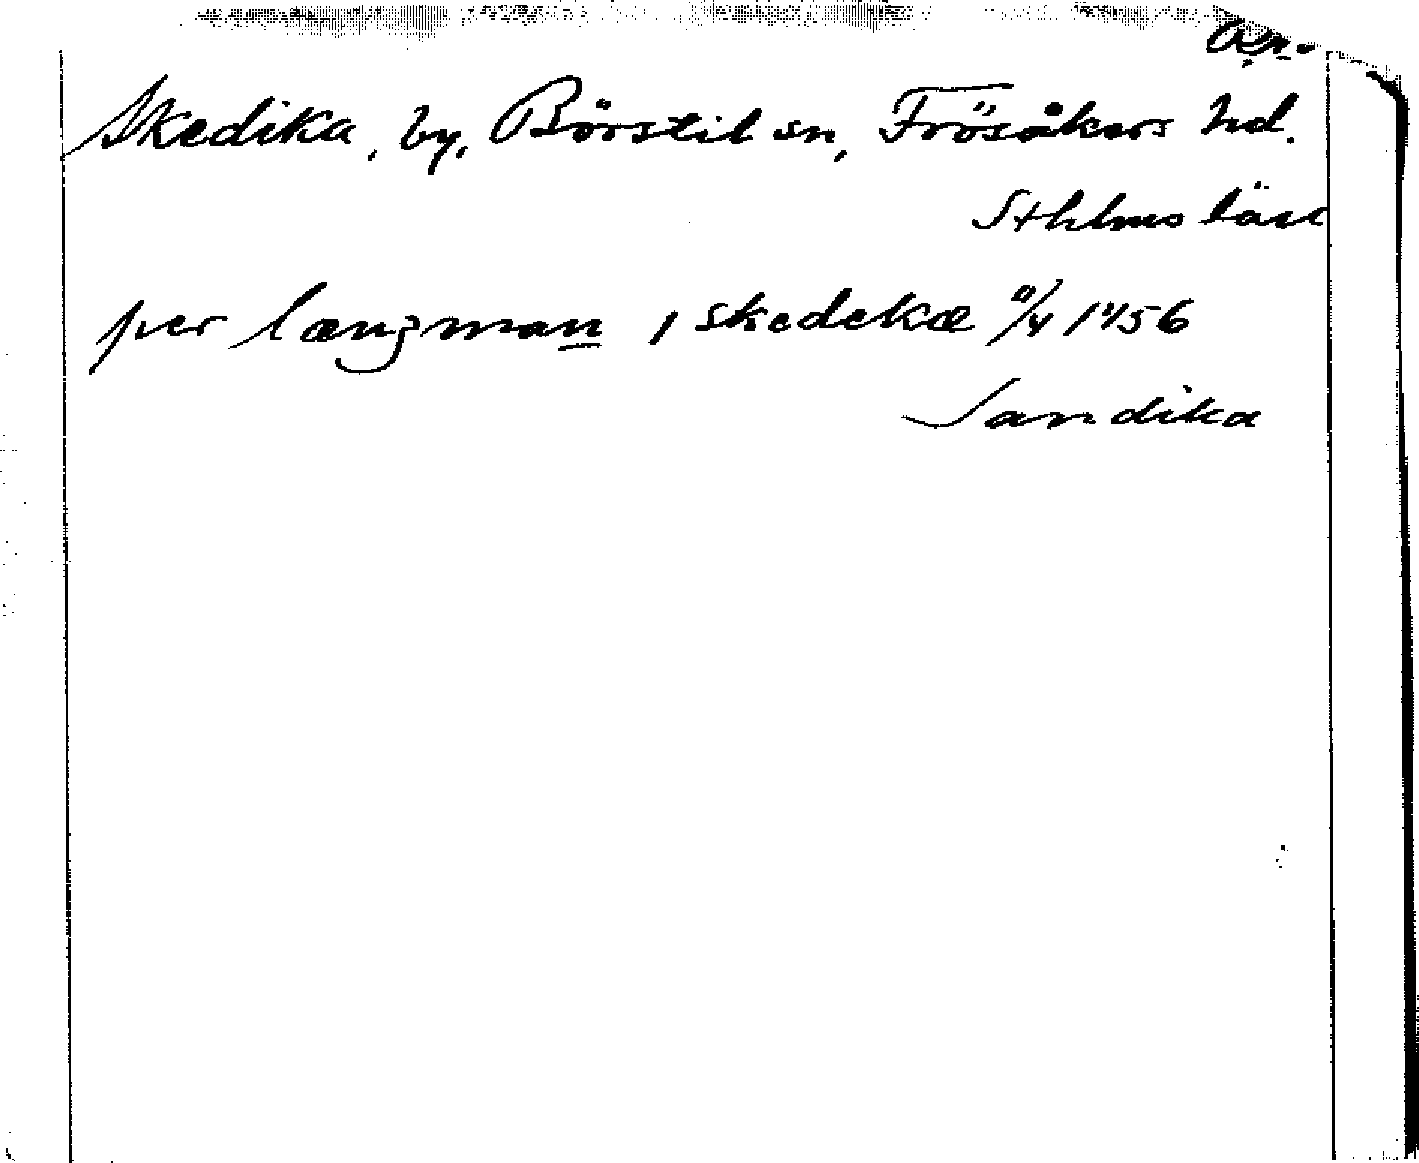 Skedika, by, Börstil sn, Frösåkers hd.
Sthlms län
per længman i skedekæ /4 1456
Sandika